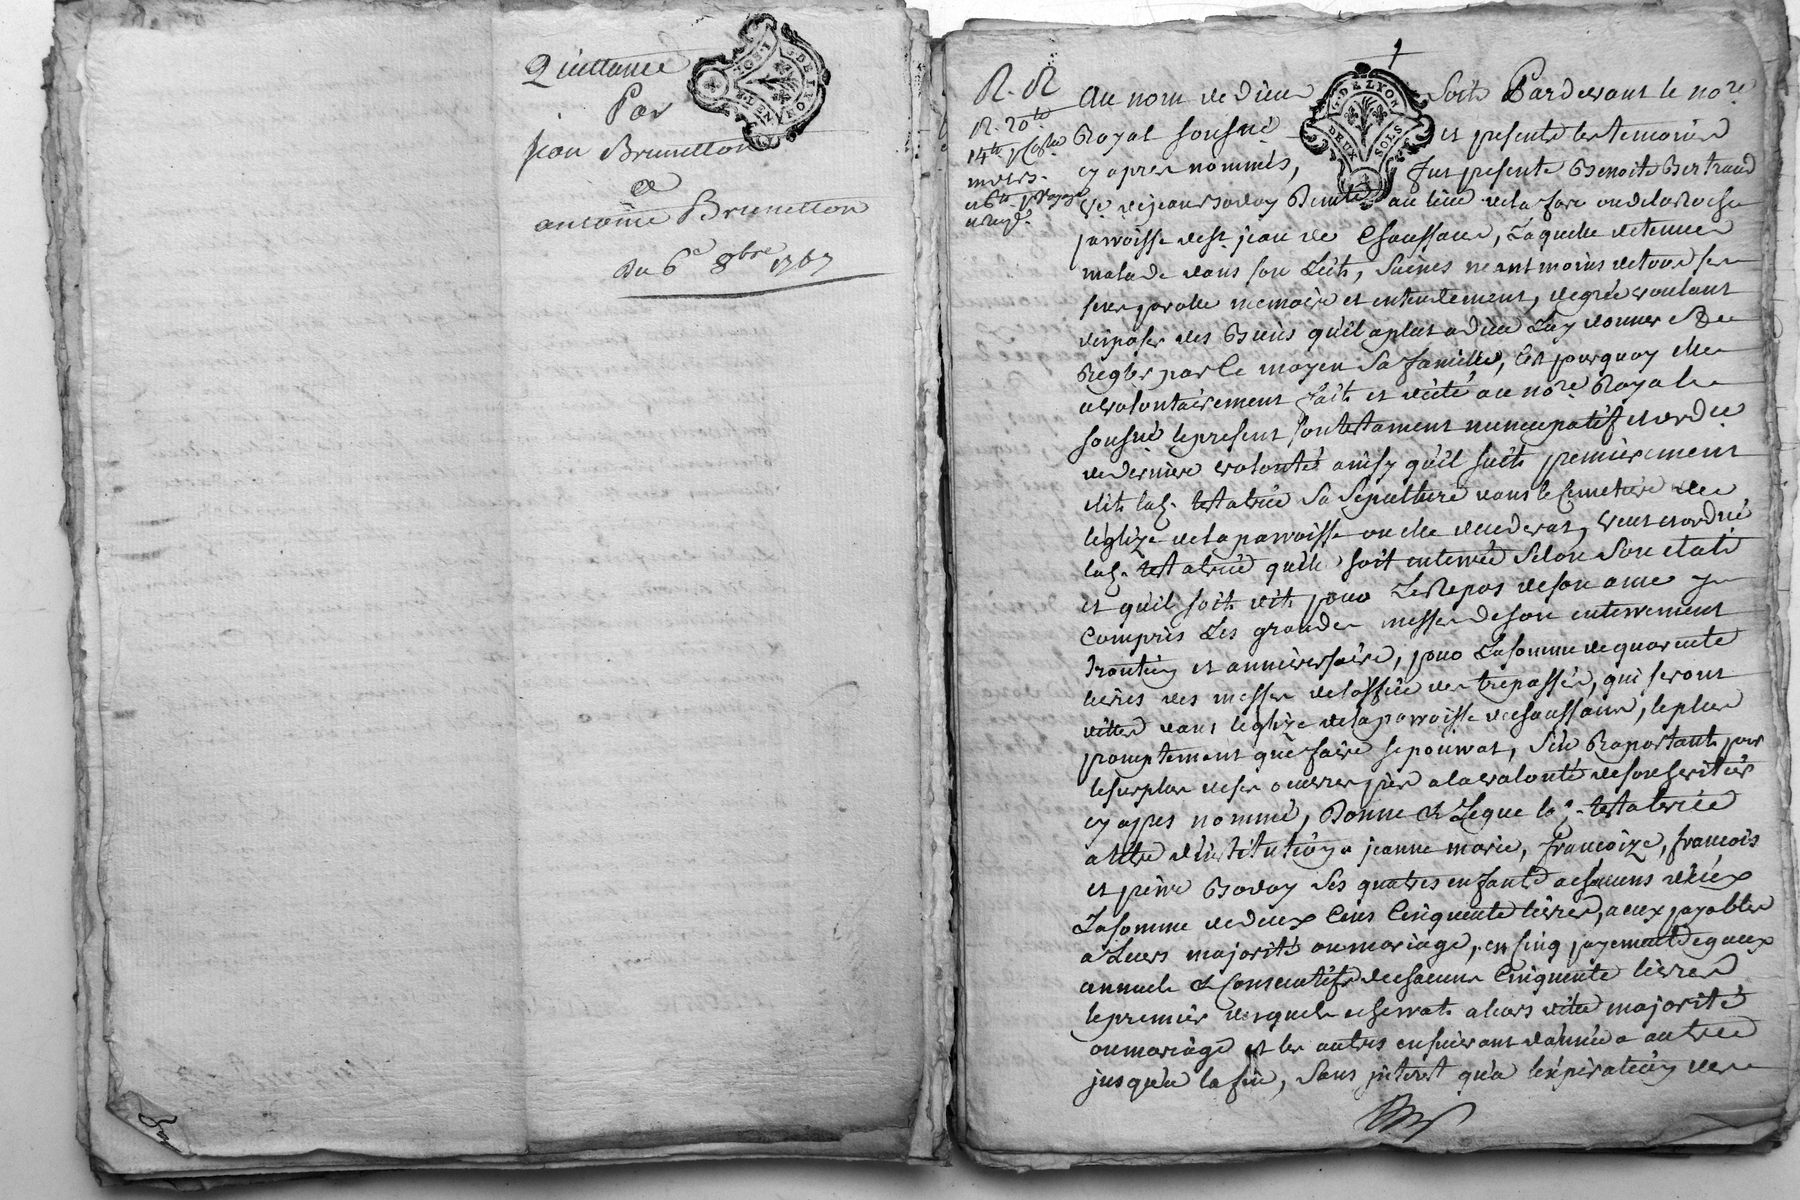 Quittance
Par
jean Brunetton
a
antoine Brunetton
du 6e 8bre 1767
G. DE LYON
DEUX SOLS
R. R
Au nom de Dieu Soit Pardevant le nore
Royal sousné et presents les temoins
cy apres nommés, fut presente Benoite Bertrand
Ve. de jean Boday au lieu de la faro ou de la Roche
parroisse de st jean de Chaussans, Laquelle detenue
malade dans son Lict, Saines neantmoins de tous ses
sens parolle memoire et entendement, de gré voulant
disposer des Biens qu'il a plut a dieu Luy donner &
Regler par ce moyen Sa famille, C'est pourquoy elle
a volontairement fait et dicté au nore Royal
sousné le present son testament nuncupatif et ordre
de derniere volonté ainsy qu'il suit, premierement
elit lad. testatrice Sa Sepulture dans le Cimetiere de
l'eglize de la parroisse ou elle decederat, Veut et ordne
lad. testatrice qu'elle soit enterrée Selon Son etat
et qu'il soit dit pour Le Repos de son ame y
Compris Les grandes messes de son enterrement
et anniversaire, pour La somme de quarente
livres des messes de l'office des trepassés, qui seront
dittes dans l'eglize de la parroisse de Chaussans, le plus
promptement que faire se pourrat, S'en Raportant pour
le surplus de ses oeuvres pies a la volonté de son heritier
cy apres nommé, Donne & Legue lad. testatrice
a titre d'institution a jeanne marie, francoize, francois
et pierre Boday Ses quatres enfants a chacuns d'eux
La somme de deux Cens Cinquente livres, a eux payables
a Leurs majorité ou mariage, en Cinq payements egaux
annuels & Consecutifs de chacun Cinquente livres
le premier desquels echerrat a leurs dite majorité
ou mariage et les autres ensuivant d'année a autre
jusqu'a la fin, Sans interet qu'a l'expiration des